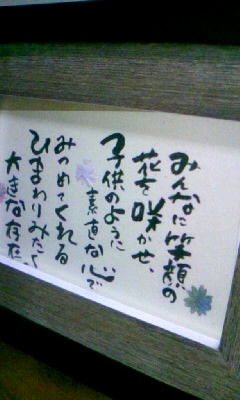 みんなに笑顔の
花を咲かせ、
子供のように
素直な心で
みつめてくれる
ひまわりみたく
大きな存在